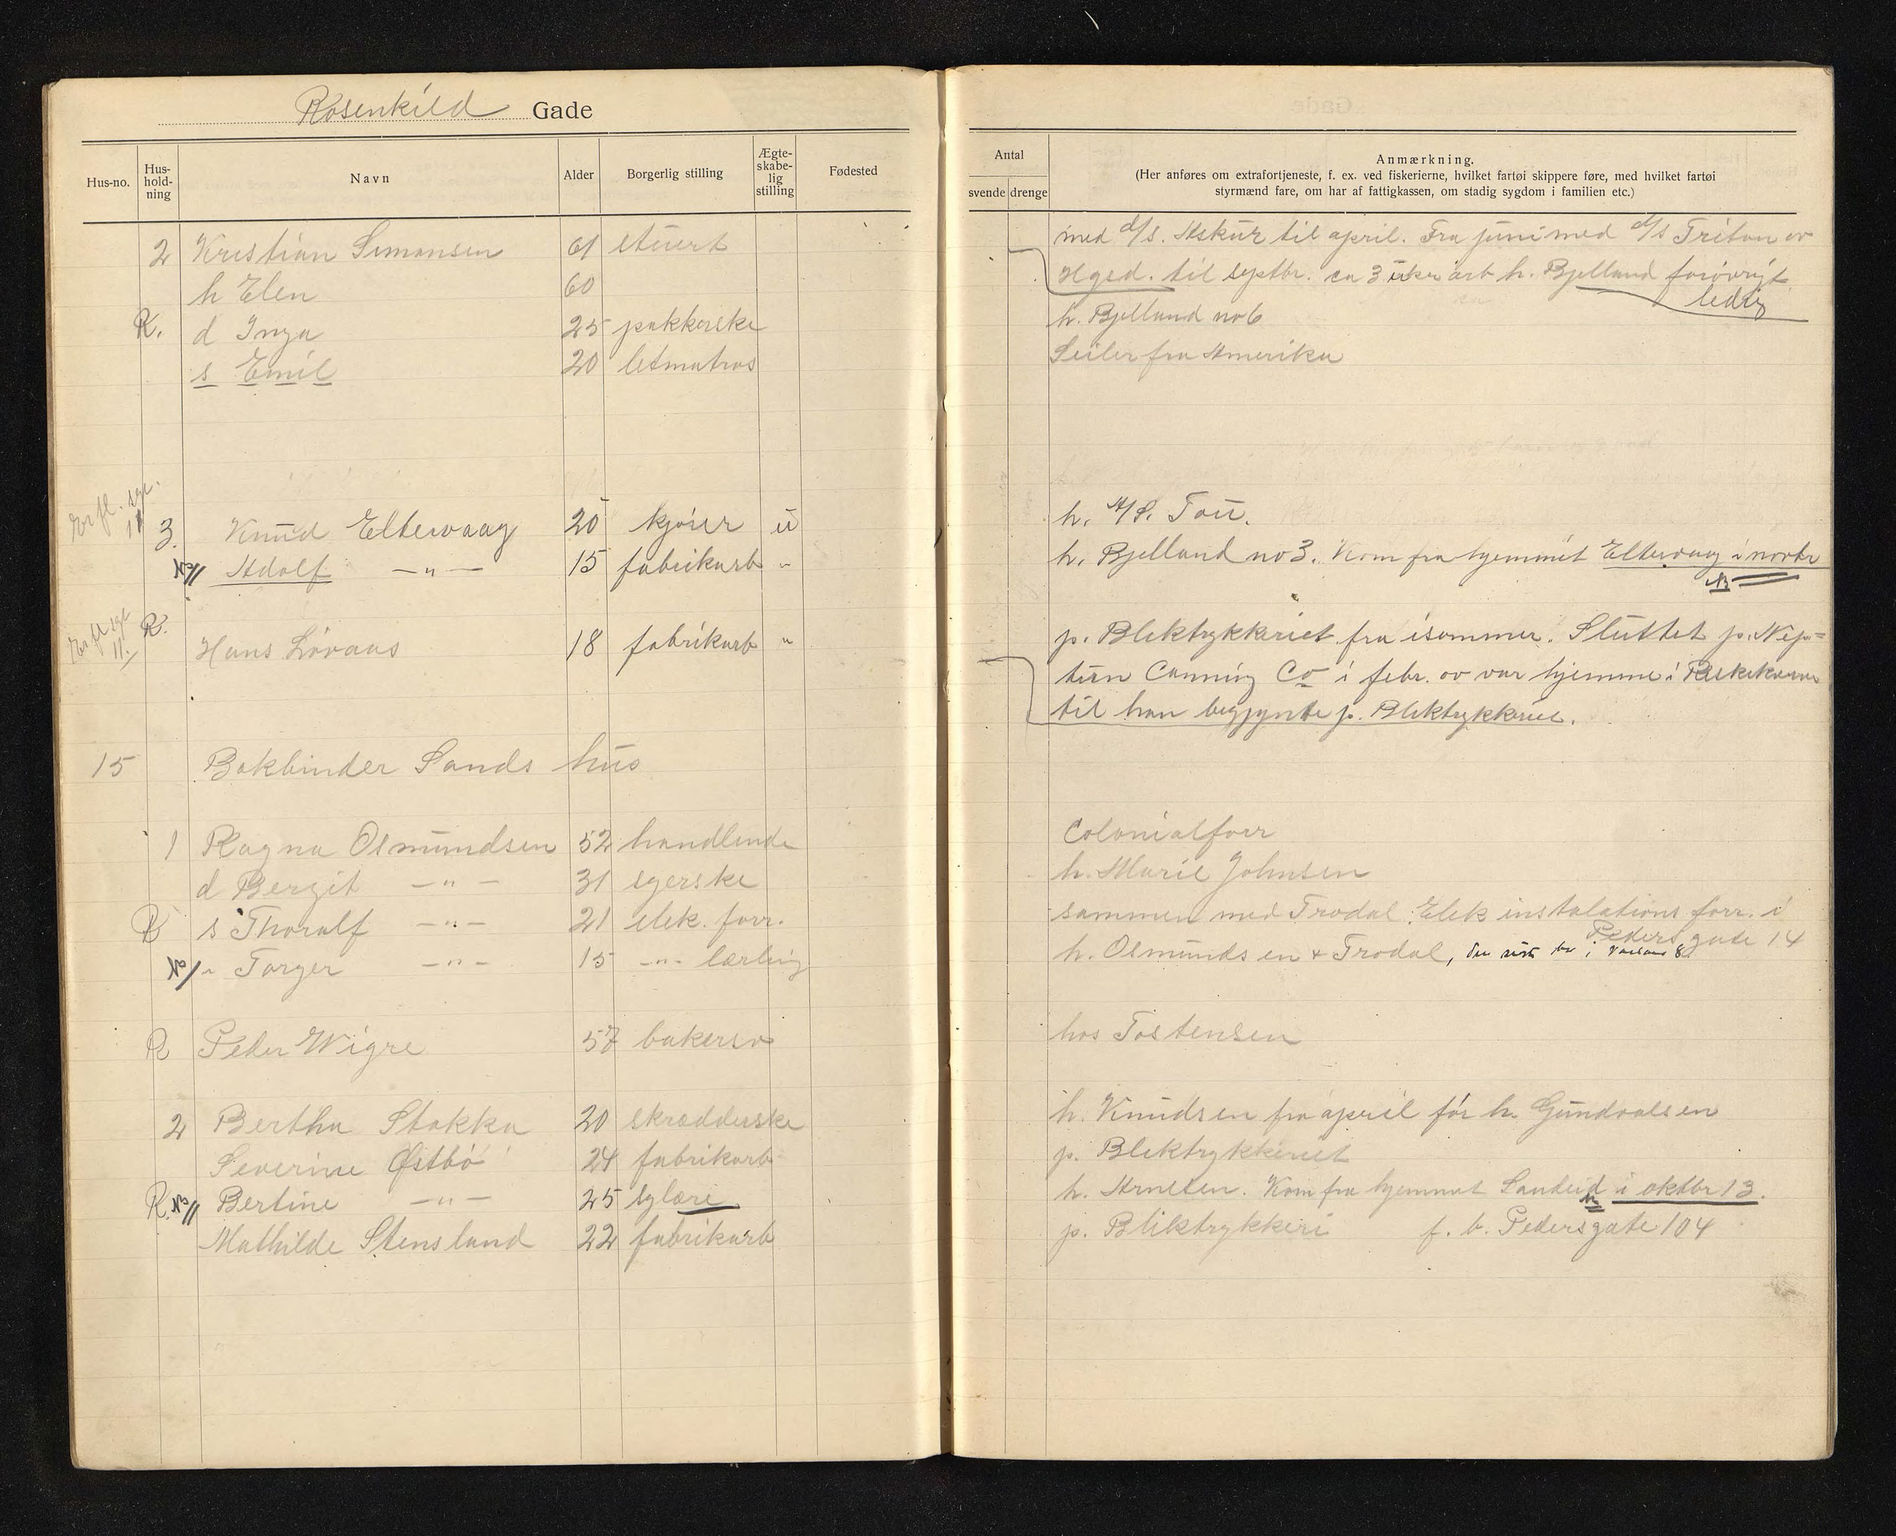 Rosenkild Gade
Hus-no.
Hus-
hold-
ning
Navn
Alder
Borgerlig stilling
Ægte-
skabe-
lig
stilling
Fødested
2 Kristian Simonsen 61 stuert
h Elen 60
R. d Inga 25 pakkerske
s Emil 20 letmatros
3. Knud Eltervaag 20 kjører u
No 11 Adolf —"— 15 fabrikarb "
R. Hans Lövaas 18 fabrikarb "
15 Bokbinder Sands hus
1 Ragna Osmundsen 52 handlende
d Bergit —"— 31 syerske
R s Thoralf —"— 21 elek. forr.
" Torger —"— 15 —"— lærling
R Peder Wigre 57 bakersv
2 Bertha Stokka 20 skrædderske
Severine Østbö 24 fabrikarb
R. No 11 Bertine —"— 25 sylære
Mathilde Stensland 22 fabrikarb
Antal
svende drenge
Anmærkning.
(Her anføres om extrafortjeneste, f. ex. ved fiskerierne, hvilket fartøi skippere føre, med hvilket fartøi
styrmænd fare, om har af fattigkassen, om stadig sygdom i familien etc.)
med d/s. Askur til april. Fra juni med d/s Triton av
Hgsd. til septbr. ca 3 uker arb h. Bjelland forøvrigt
ledig
h. Bjelland no 6
Seiler fra Amerika
h. A/S. Tou.
h. Bjelland no 3. Kom fra hjemmet Eltervaag i novbr
p. Blektrykkeriet fra isommer. Sluttet p. Nep=
tun Canning Co i febr. ov var hjemme i
til han begynte p. Blektrykkeriet.
Colonialforr
h. Marie Johnsen
sammen med Trodal. Elek instalations forr. i
Peders gade 14
h. Osmundsen + Trodal,
hos Tostensen
h. Knudsen fra april før h. Gundvalsen
p. Blektrykkeriet
h. Arnesen. Kom fra hjemmet Sandeid i oktbr 13.
p. Bliktrykkeri f. b. Pedersgate 104